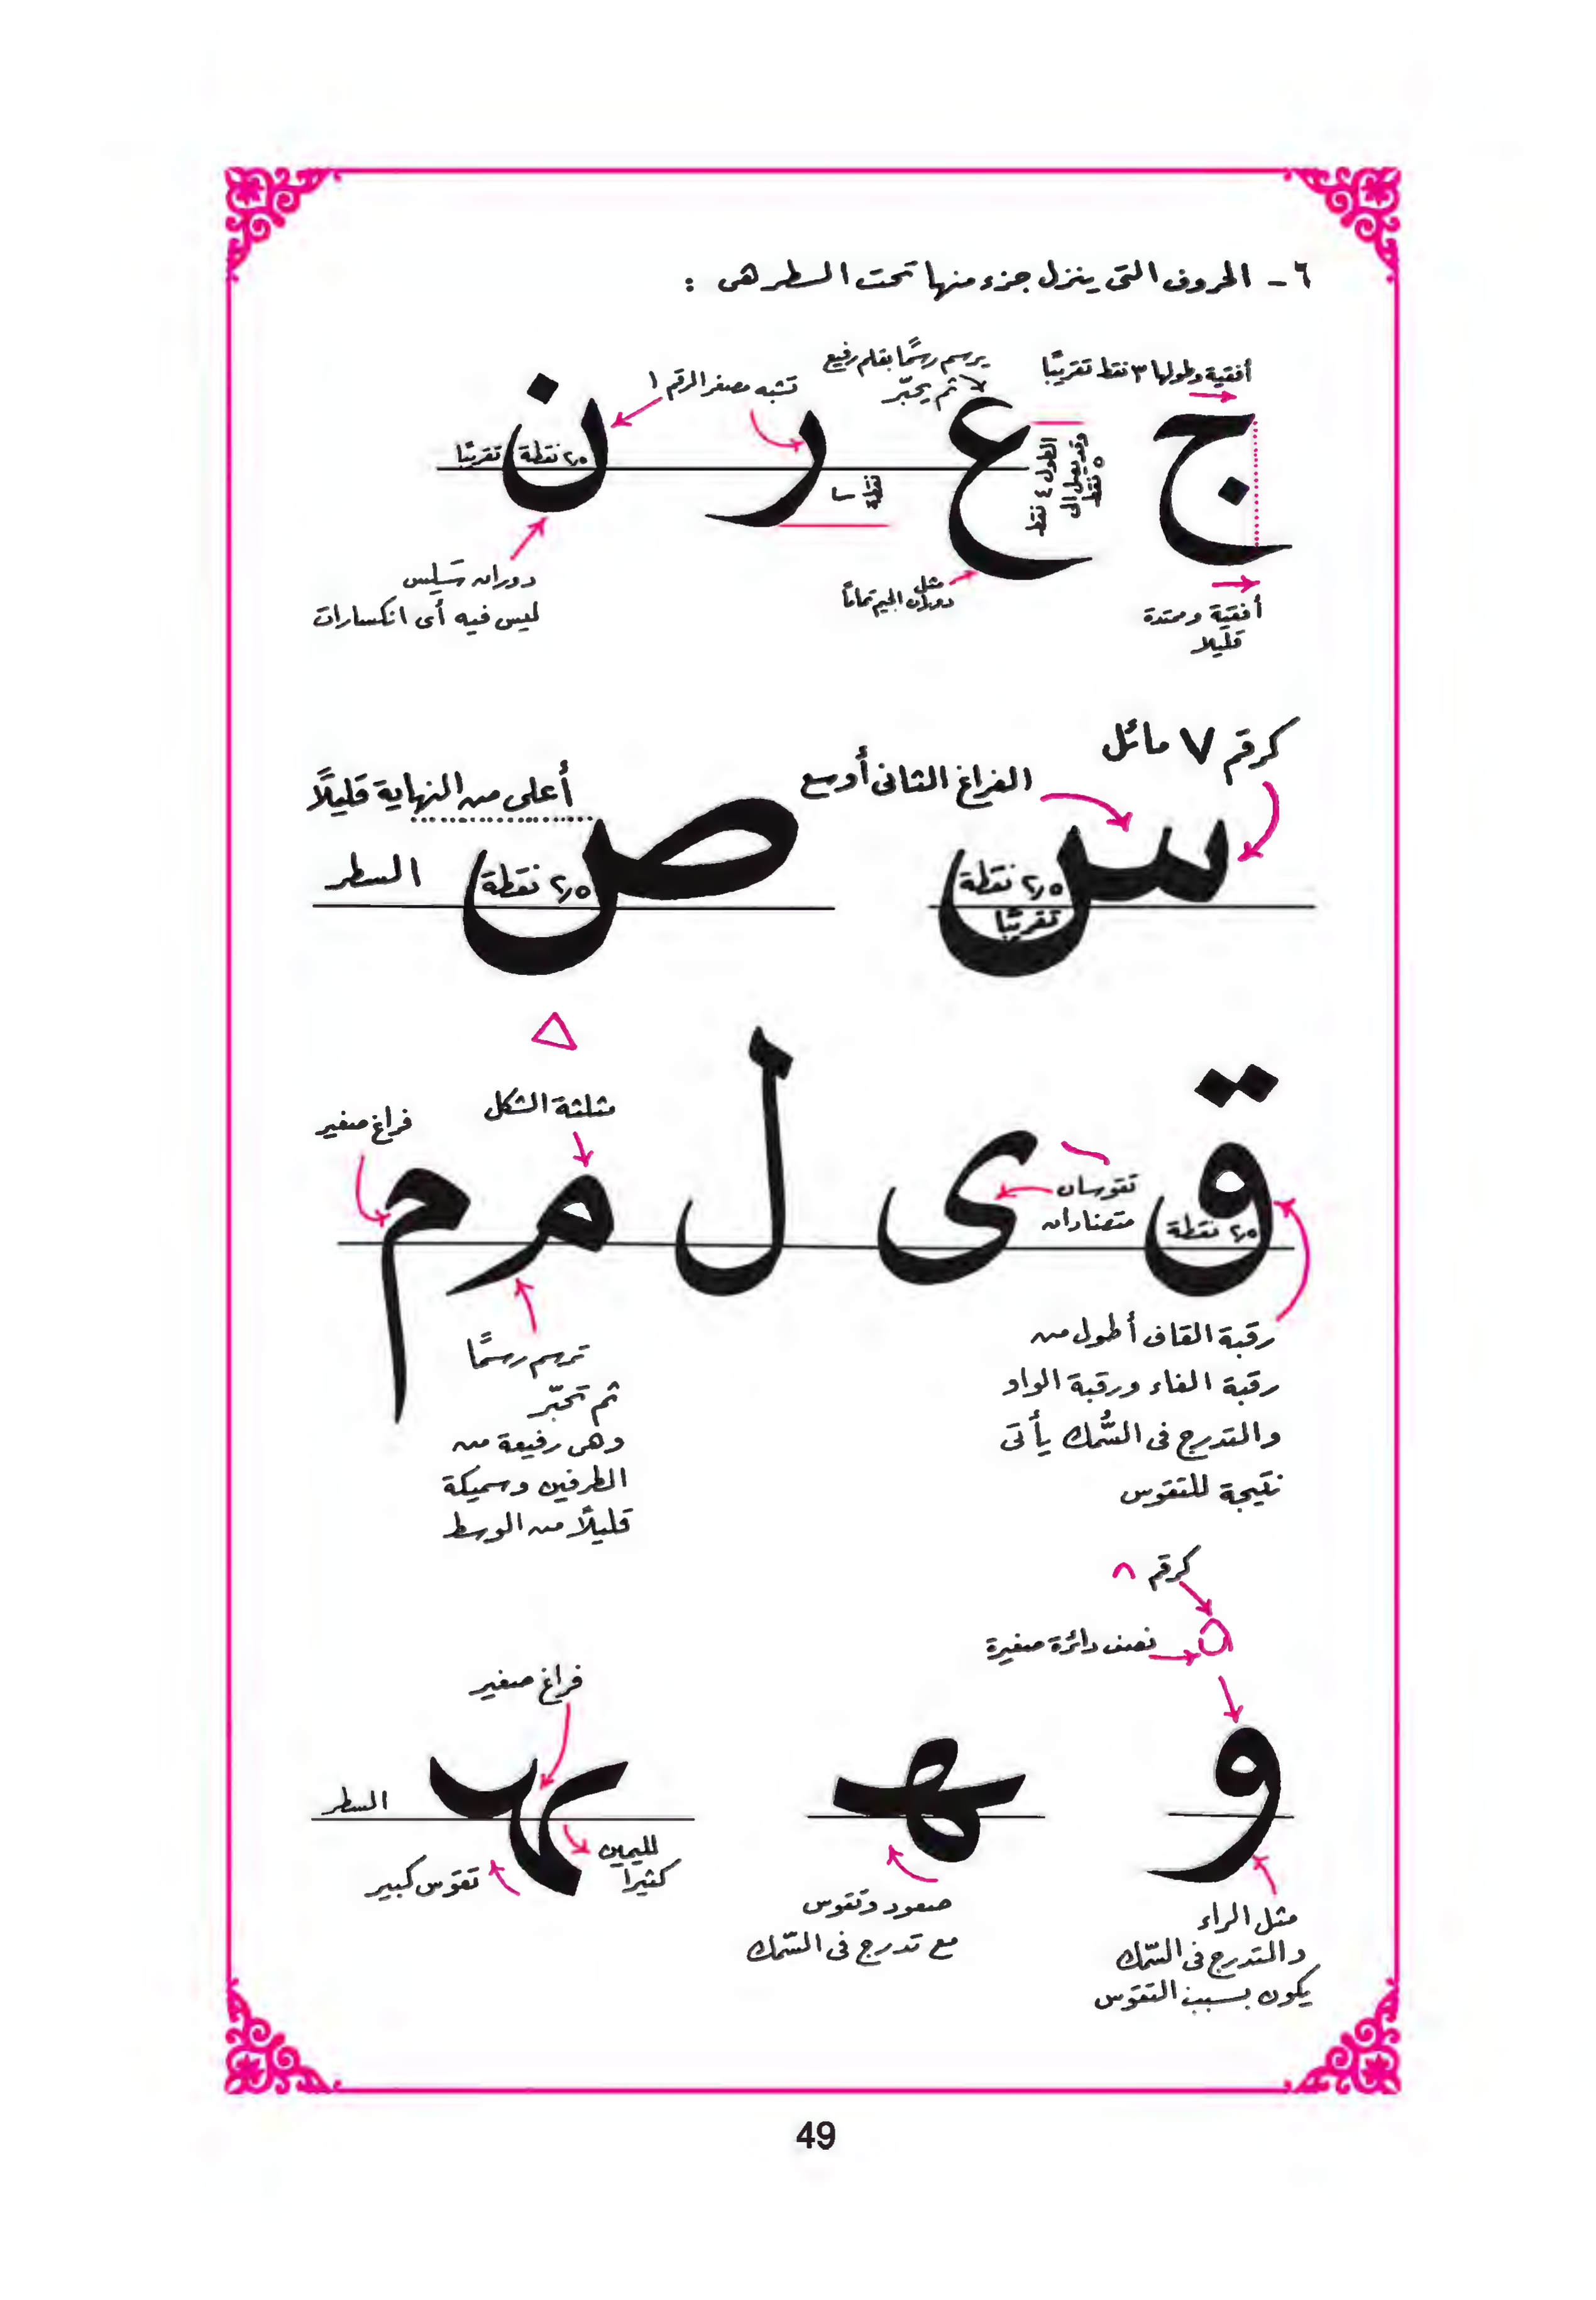 ٦ - الحروف التى ينزل جزء منها تحت السطر هى :
أفقية وطولها ٣ نقط تقريبًا
يرسم رسمًا بقلم رفيع
ثم يحبّر
تشبه مصغر الرقم ١
ج ع ر ن
الطول ٤ نقط
وقد يصل إلى
٥ نقط
٢ نقطة
٢,٥ نقطة تقريبًا
أفقية وممتدة
قليلا
مثل
دوران الجيم تمامًا
دوران سَلِس
ليس فيه أى انكسارات
كرقم ٧ مائل
الفراغ الثانى أوسع
أعلى من النهاية قليلًا
س ص
٢,٥ نقطة
تقريبًا
٢,٥ نقطة
السطر
مثلثة الشكل
فراغ صغير
ق ى ل م م
تقوسان
متضادان
٢,٥ نقطة
رقبة القاف أطول من
رقبة الفاء ورقبة الواو
والتدرج فى السُّمك يأتى
نتيجة للتقوس
ترسم رسمًا
ثم تحبّر
وهى رفيعة من
الطرفين وسميكة
قليلًا من الوسط
كرقم ٨
نصف دائرة صغيرة
فراغ صغير
و ـهـ ـهـ
السطر
لليمين
كثيرا
تقوس كبير
صعود وتقوس
مع تدرج فى السّمك
مثل الراء
والتدرج فى السّمك
يكون بسبب التقوس
49